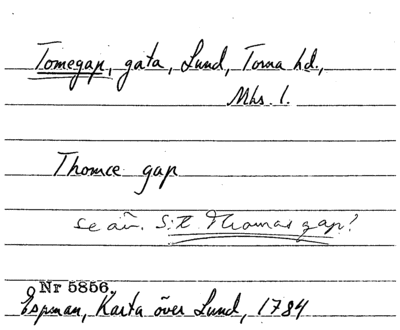 Tomegap, gata, Lund, Torna hd.,
Mhs. l.
Thomce gap
se äv. S:t Thomas gap?
Nr 5856.
Espman, Karta över Lund, 1784